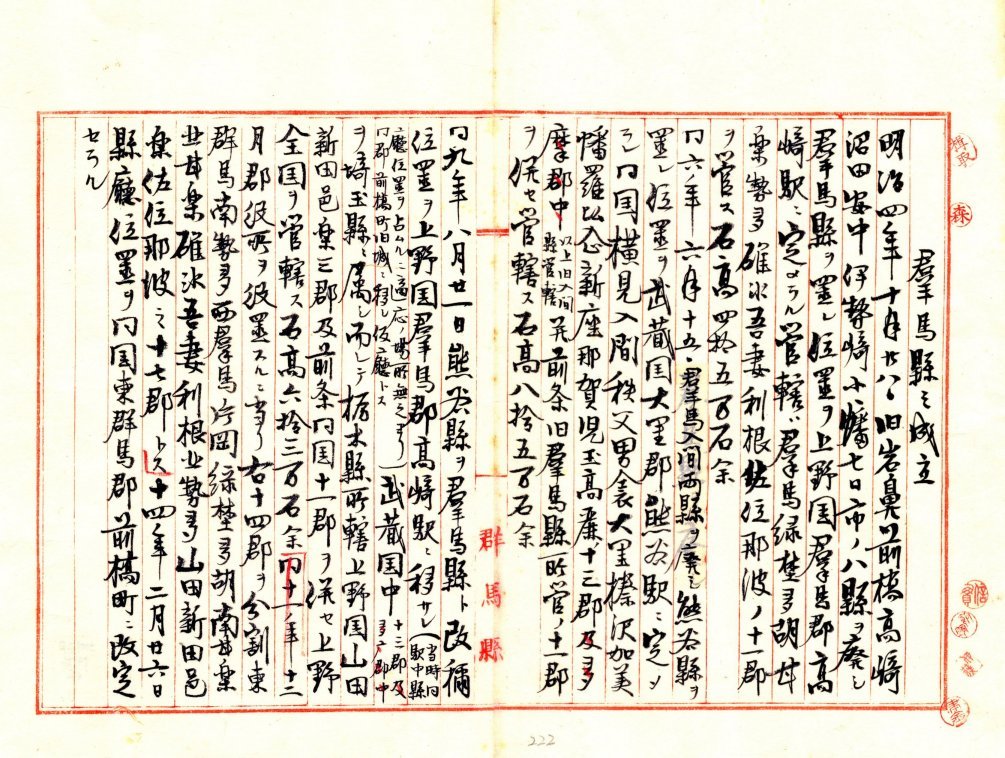 群馬縣之成立
明治四年十月廿八日旧岩鼻前橋高崎
沼田安中伊勢崎小幡七日市ノ八縣ヲ廃シ
群馬縣ヲ置シ位置ヲ上野国群馬郡高
崎駅ニ定メラル管轄ハ群馬緑埜多胡甘
楽勢多碓氷吾妻利根佐位那波ノ十一郡
ヲ管ス石高四拾五万石余
同六年六月十五日群馬入間両縣ヲ廃シ熊谷縣ヲ
置シ位置ヲ武蔵国大里郡熊谷駅ニ定メ
ラレ同国横見入間秩父男衾大里榛沢加美
幡羅比企新座那賀児玉高麗十三郡及多
摩郡中以上旧入間縣管轄並前条旧群馬縣所管ノ十一郡
ヲ併セ管轄ス石高八拾五万石余
群馬縣
同九年八月廿一日熊谷縣ヲ群馬縣ト改称
位置ヲ上野国群馬郡高崎駅ニ移サレ（当時同駅中縣
廳位置ヲ占ムルニ適応ノ場所無之ヨリ
同郡前橋町旧城ニ移シ仮廳トス）武蔵国中十二郡及多摩郡中
ヲ埼玉縣ニ属シ而シテ栃木縣所轄上野国山田
新田邑楽三郡及前条同国十一郡ヲ併セ上野
全国ヲ管轄ス石高六拾三万石余同十一年十二
月郡役所ヲ設置スルニ当リ右十四郡ヲ分割東
群馬南勢多西群馬片岡緑埜多胡南甘楽
北甘楽碓氷吾妻利根北勢多山田新田邑
楽佐位那波之十七郡トス十四年二月廿六日
縣廳位置ヲ同国東群馬郡前橋町ニ改定
セラル
222